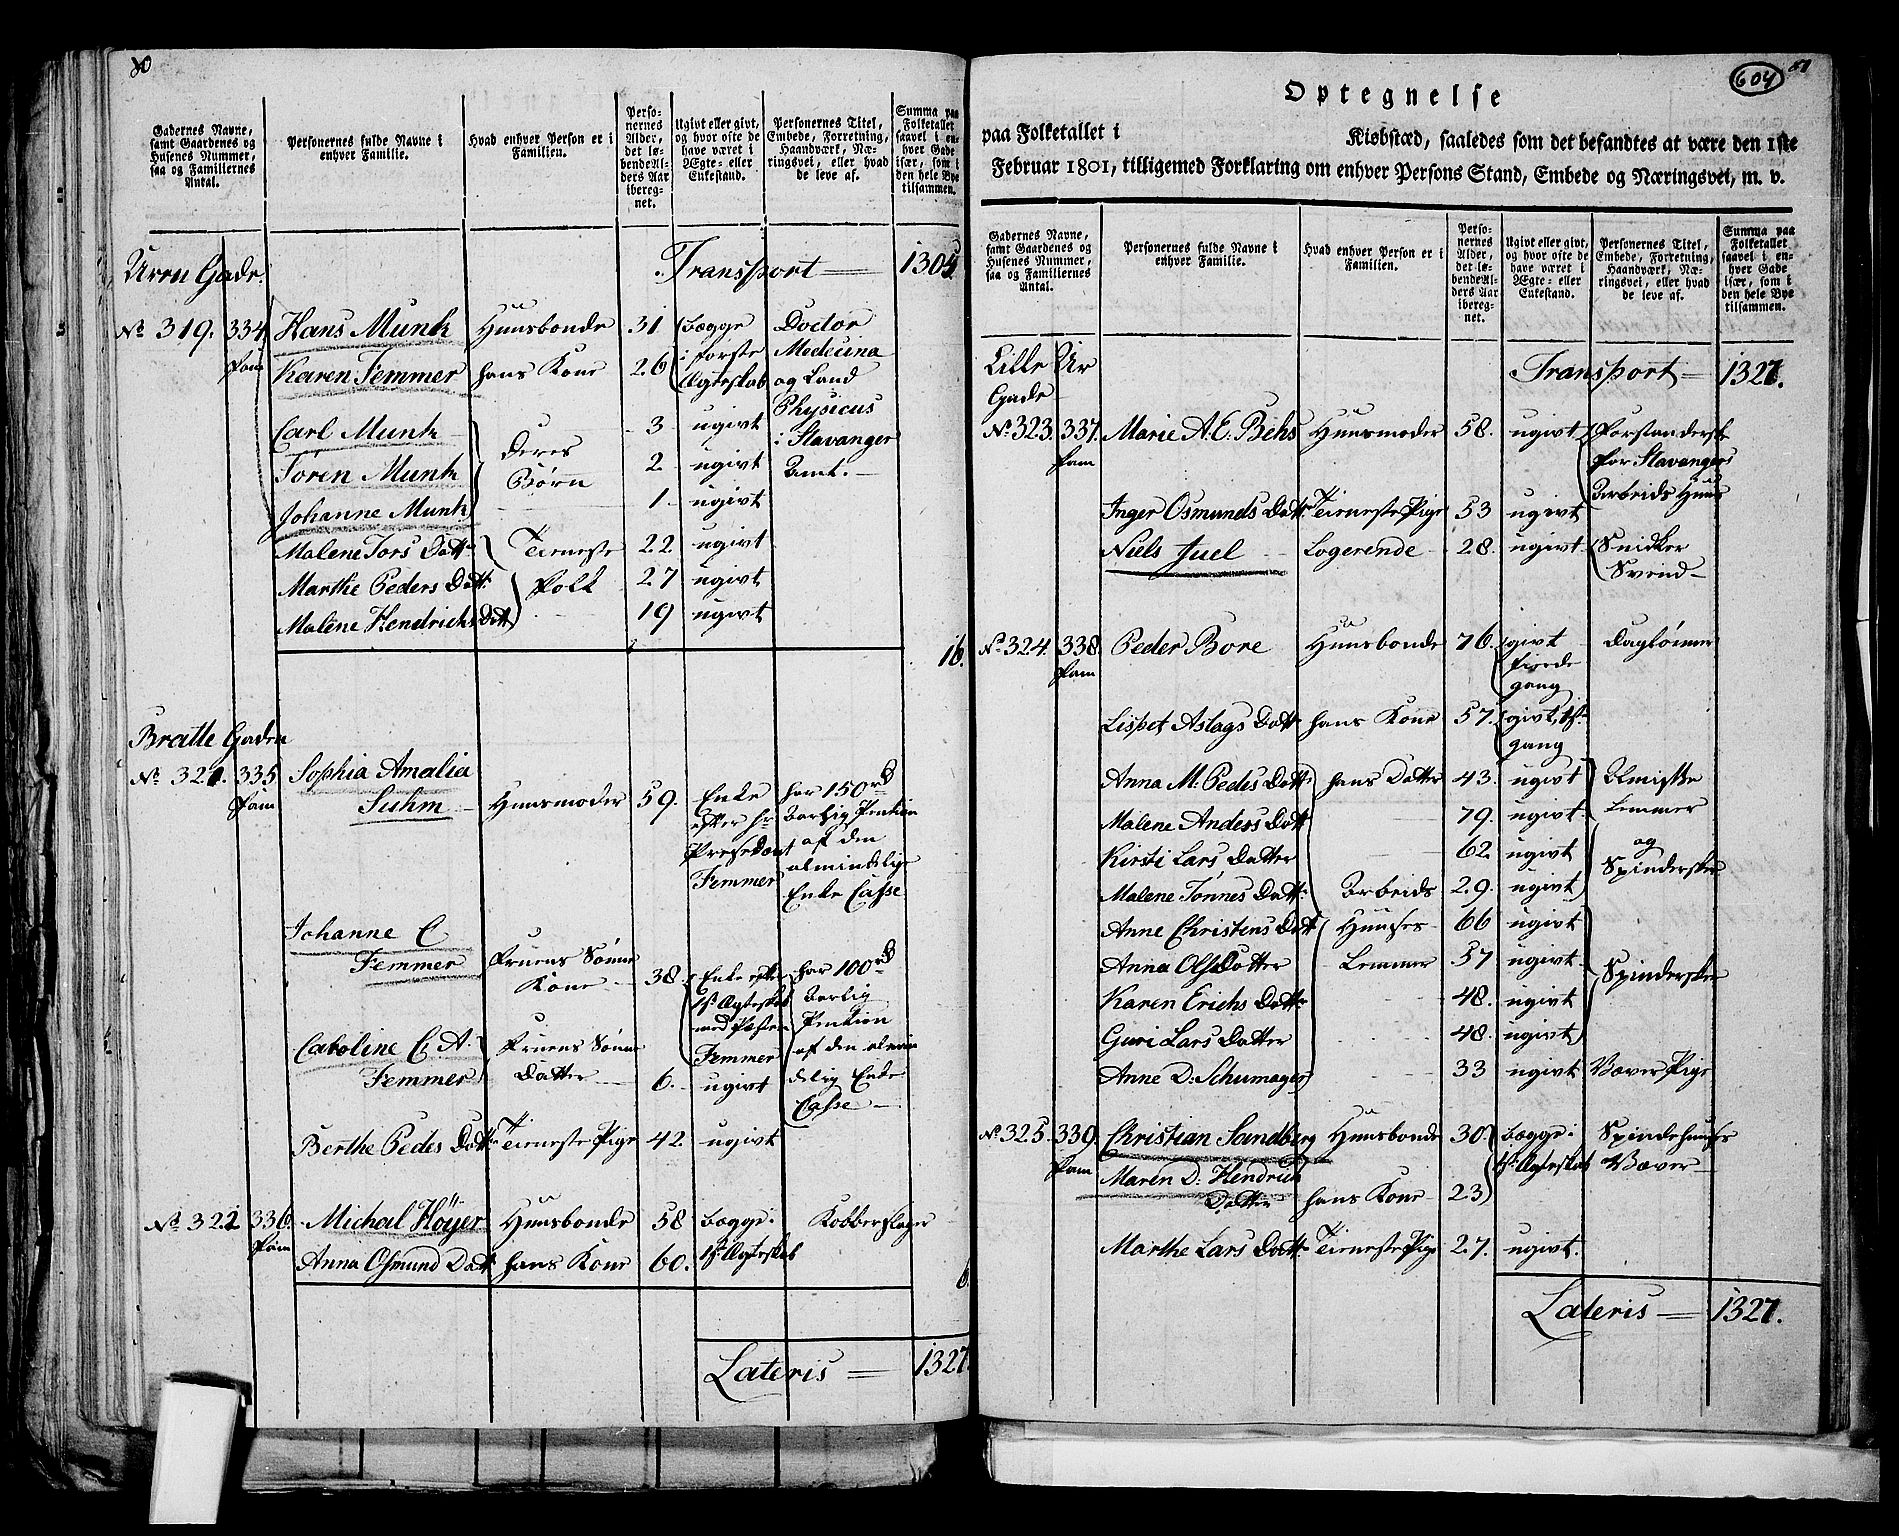 80
Gadernes Navne, samt Gaardenes og Husenes Nummer, saa og Famillernes Antal.
Personernes fulde Navne i enhver Familie.
Hvad enhver Person er i Familien.
Personernes Alder, det løbende Alders Aar iberegnet.
Ugivt eller givt, og hvor ofte de have været i Ægte- eller Enkestand.
Personernes Titel, Embede, Forretning, Haandværk, Næringsvei, eller hvad de leve af.
Summa paa Folketallet saavel i enhver Gade især, som i den hele Bye tilsammen.
Transport 1305
№ 319. 334 Fam Hans Munk Huusbonde 31 begge i første Ægteskab Doctor Medecina og Land Physicus i Stavanger Amt.
Karen Femmer hans Kone 26
Carl Munk Deres Børn 3 ugivt
Søren Munk 2 ugivt
Johanne Munk 1 ugivt
Malene Tors Datt: Tieneste Folk 22 ugivt
Marthe Peders Datt: 27 ugivt
Malene Hendrichs Datt: 19 ugivt
16.
Bratte Gaden
№ 321. 335 Fam Sophia Amalia Suhm Huusmoder 59. Enke efter Hr Presedent Femmer har 150 rd Aarlig Pention af den almindelige Enke Casse
Johanne C Femmer Fruens Sønne Kone 38 Enke efter 1st Ægteskab med Femmer har 100 rd Aarlig Pention af den almindelig Enke Casse
Caroline C. A. Femmer Fruens Sønne Datter 6. ugivt
Berthe Pedes Datt: Tieneste Pige 42. ugivt
№ 322 336. Fam Michael Höyer Huusbonde 58 begge i 1st Ægteskab Kobberslager
Anna Osmund Datt: hans Kone 60.
6
Lateris 1327.
604
81
Optegnelse
paa Folketallet i Kiøbstæd, saaledes som det befandtes at være den 1ste
Februar 1801, tilligemed Forklaring om enhver Persons Stand, Embede og Næringsvei, m. v.
Gadernes Navne, samt Gaardenes og Husenes Nummer, saa og Famillernes Antal.
Personernes fulde Navne i enhver Familie.
Hvad enhver Person er i Familien.
Personernes Alder, det løbende Alders Aar iberegnet.
Ugivt eller givt, og hvor ofte de have været i Ægte- eller Enkestand.
Personernes Titel, Embede, Forretning, Haandværk, Næringsvei, eller hvad de leve af.
Summa paa Folketallet saavel i enhver Gade især, som i den hele Bye tilsammen.
Lille Ur Gade
Transport 1327.
№ 323. 337. Fam Marie A. E. Behs Huusmoder 58. ugivt Forstanderske for Stavangers Arbeids Huus
Inger Osmunds Datt: Tieneste Pige 53 ugivt
Niels Juel Logerende 28. ugivt Snidker Svend
№ 324. 338. Fam Peder Bore Huusbonde 76. givt fierde gang Daglønner
Lispet Aslags Datt: hans Kone 57. givt, 1st gang
Anna M. Pedes Datt: hans Datter 43. ugivt Almisse Lemmer og Spindersker
Malene Anders Datt: 79. ugivt
Kirsti Lars Datter 62. ugivt
Malene Tønnes Datt: Arbeids 29. ugivt
Anne Christens Datt Huuses 66 ugivt
Anna Ols Datter Lemmer 57 ugivt Spindersker
Karen Erichs Datter 48. ugivt
Guri Lars Datter 48. ugivt
Anne D. Schumager 33 ugivt Væver Pige
№ 325. 339. Fam Christian Sandberg Huusbonde 30 begge i 1st Ægteskab Spindehuuses Væver
Maren D. Hendrich Datter hans Kone 23
Marthe Lars Datt: Tieneste Pige 27. ugivt.
Lateris 1327.